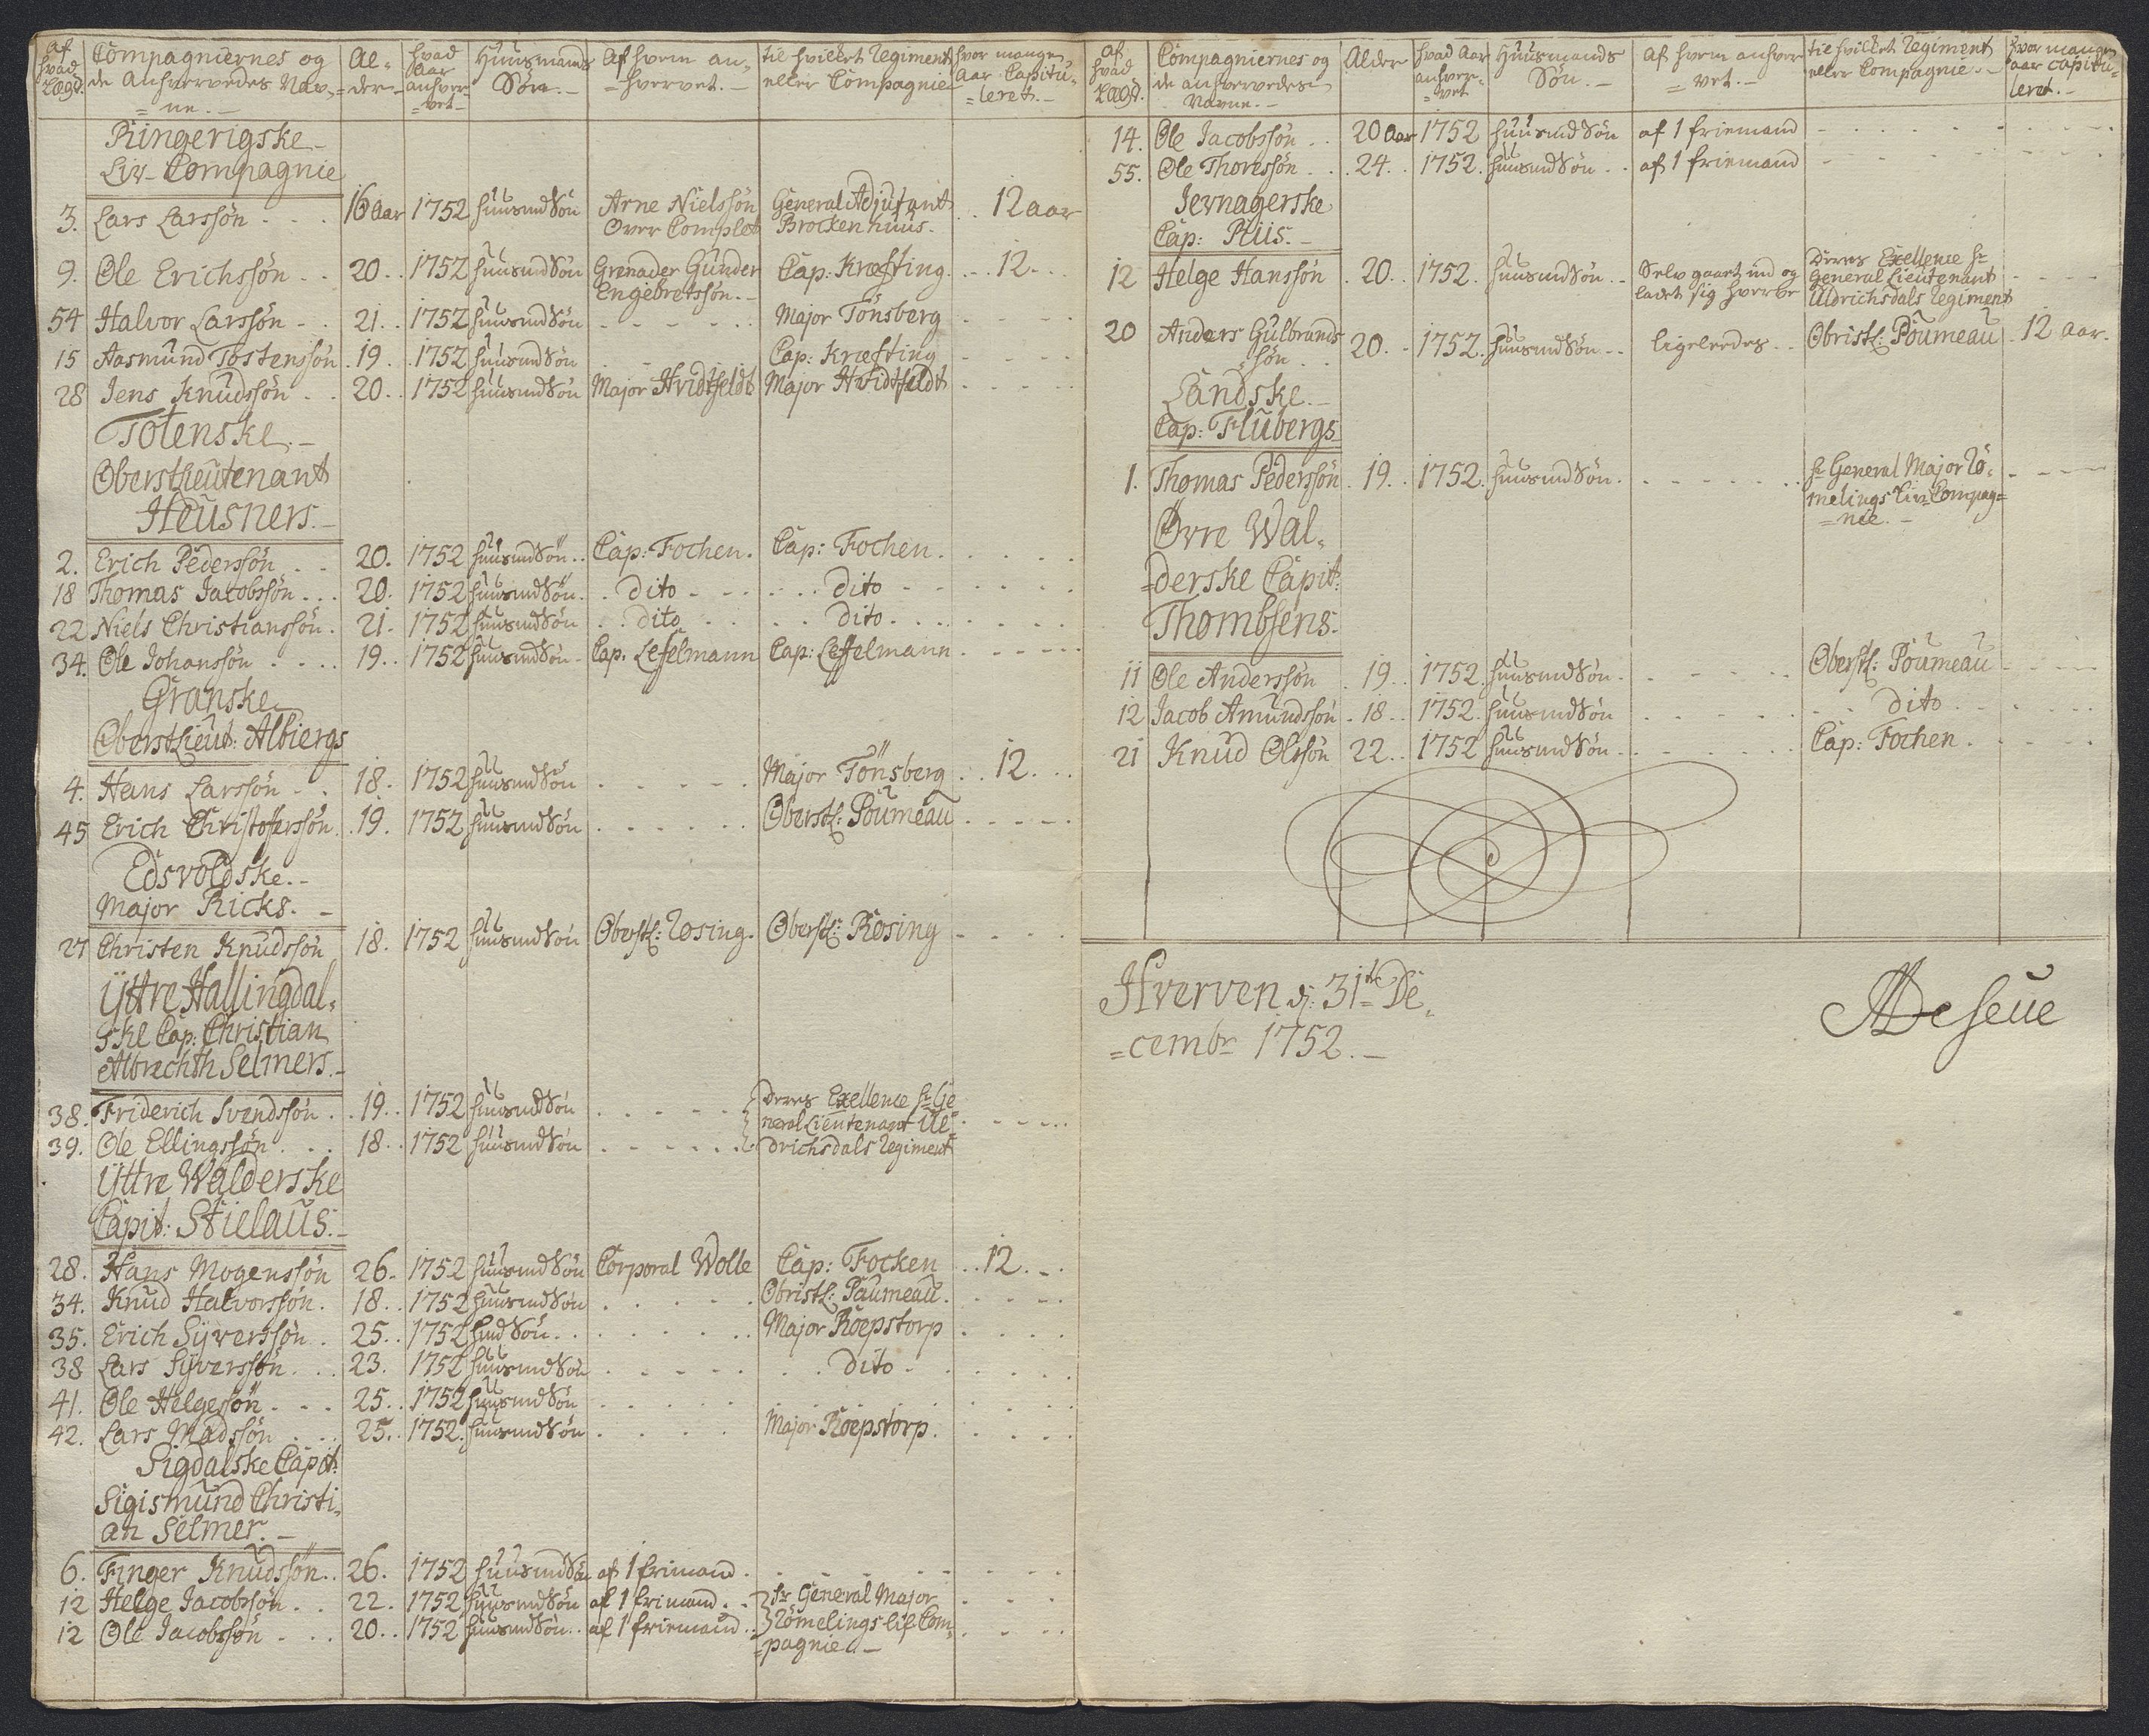 af hvad Lægd. Compagniernes og de Anhvervedes Nav= =ne.- Al= der- hvad Aar anhver= =vet- Huusmands Søn.- Af hvem an= =hvervet.- til hvilket Regiment eller Compagnie hvor mange Aar Capitu= =leret.-
Ringerigske
Liv Compagnie
3. Lars Larssøn 16 aar 1752 huusmd Søn Arne Nielssøn Over Complet General Adjutant Brockenhuus. 12 aar
9. Ole Erichssøn 20. 1752 huusmd Søn Grenader Gunder Engebretssøn.- Cap. Krefting. 12.
54 Halvor Larssøn 21. 1752 huusmd Søn Major Tönsberg
15 Aasmund Tostenssøn 19. 1752 huusmd Søn Cap: Krefting
28 Jens Knudssøn 20. 1752 huusmd Søn Major Hvidtfeldt Major Hvidtfeldt
Totenske.-
Oberstlieutenant
Heusners.-
2. Erich Pederssøn 20. 1752 huusmd Søn Cap: Fochen. Cap: Fochen.
18 Thomas Jacobssøn 20. 1752 huusmd Søn dito dito
22 Niels Christianssøn. 21. 1752 huusmd Søn dito dito
34. Ole Johanssøn 19. 1752 huusmd Søn Cap. Lesselmann Cap: Lesselmann
Granske
Oberstlieut: Albiergs
4. Hans Larssøn 18. 1752 huusmd Søn Major Tönsberg 12.
45 Erich Christoferssøn. 19. 1752 huusmd Søn Oberstl: Poumeau
Edsvoldske.-
Major Ricks.-
27 Christen Knudssøn 18. 1752 huusmd Søn Oberstl: Rosing. Oberstl: Rosing
Yttre Hallingdal=
ske Cap: Christian
Albrechth Selmers.-
38. Friderich Svendssøn 19. 1752 huusmd Søn Deres Exellence Hr Ge=
neral Lieutenant Ul=
39. Ole Ellingssøn 18. 1752 huusmd Søn drichsdals Regiment
Yttre Walderske
Capit: Stielaus.-
28. Hans Mogenssøn 26. 1752 huusmd Søn Corporal Wolle Cap: Focken 12.
34. Knud Halvorssøn. 18. 1752 huusmd Søn Obristl: Paumeau.
35. Erich Syverssøn 25. 1752 hmd Søn Major Roepstorp
38 Lars Syverssøn 23. 1752 huusmd Søn dito
41. Ole Helgesøn 25. 1752 huusmd Søn
42. Lars Madssøn 25. 1752. huusmd Søn Major Roepstorp.
Sigdalske Capit:
Sigismund Christi=
an Selmer.-
6. Finger Knudssøn. 26. 1752 huusmd Søn af 1 frimand
12 Helge Jacobssøn 22. 1752 huusmd Søn af 1 frimand Hr General Major
12 Ole Jacobssøn 20. 1752 huusmd Søn af 1 friemand Römelings lif Com=
=pagnie.-
af hvad Lægd. Compagniernes og de anhvervedes Navne.- Alder hvad Aar anhver= =vet Huusmands Søn.- Af hvem anhver =vet.- til hvilket Regiment eller Compagnie.- hvor mange aar capitu= leret.-
14. Ole Jacobssøn 20 aar 1752 huusmd Søn af 1 friemand
55. Ole Thoressøn 24. 1752. huusmd Søn af 1 friemand
Jevnagerske
Cap: Riis.-
12 Helge Hanssøn 20. 1752. huusmd Søn Selv gaaet ind og ladet sig hverve Deres Exellence Hr General Lieutenant Uldrichsdals Regiment
20 Anders Gulbrands =søn 20. 1752. huusmd Søn ligeleedes Obristl: Poumeau 12 aar.
Landske.-
Cap: Flubergs
1. Thomas Pederssøn 19. 1752. huusmd Søn. Hr General Major Rö=
melings Liv Compag=
=nie.-
Øvre Wal=
=derske Capit:
Thombsens.
11 Ole Anderssøn 19. 1752. huusmd Søn. Oberstl: Poumeau
12 Jacob Amundssøn 18. 1752. huusmd Søn dito
21 Knud Olssøn 22. 1752 huusmd Søn Cap: Fochen.
Hverven d: 31te De=
=cembr 1752.-
De Seue